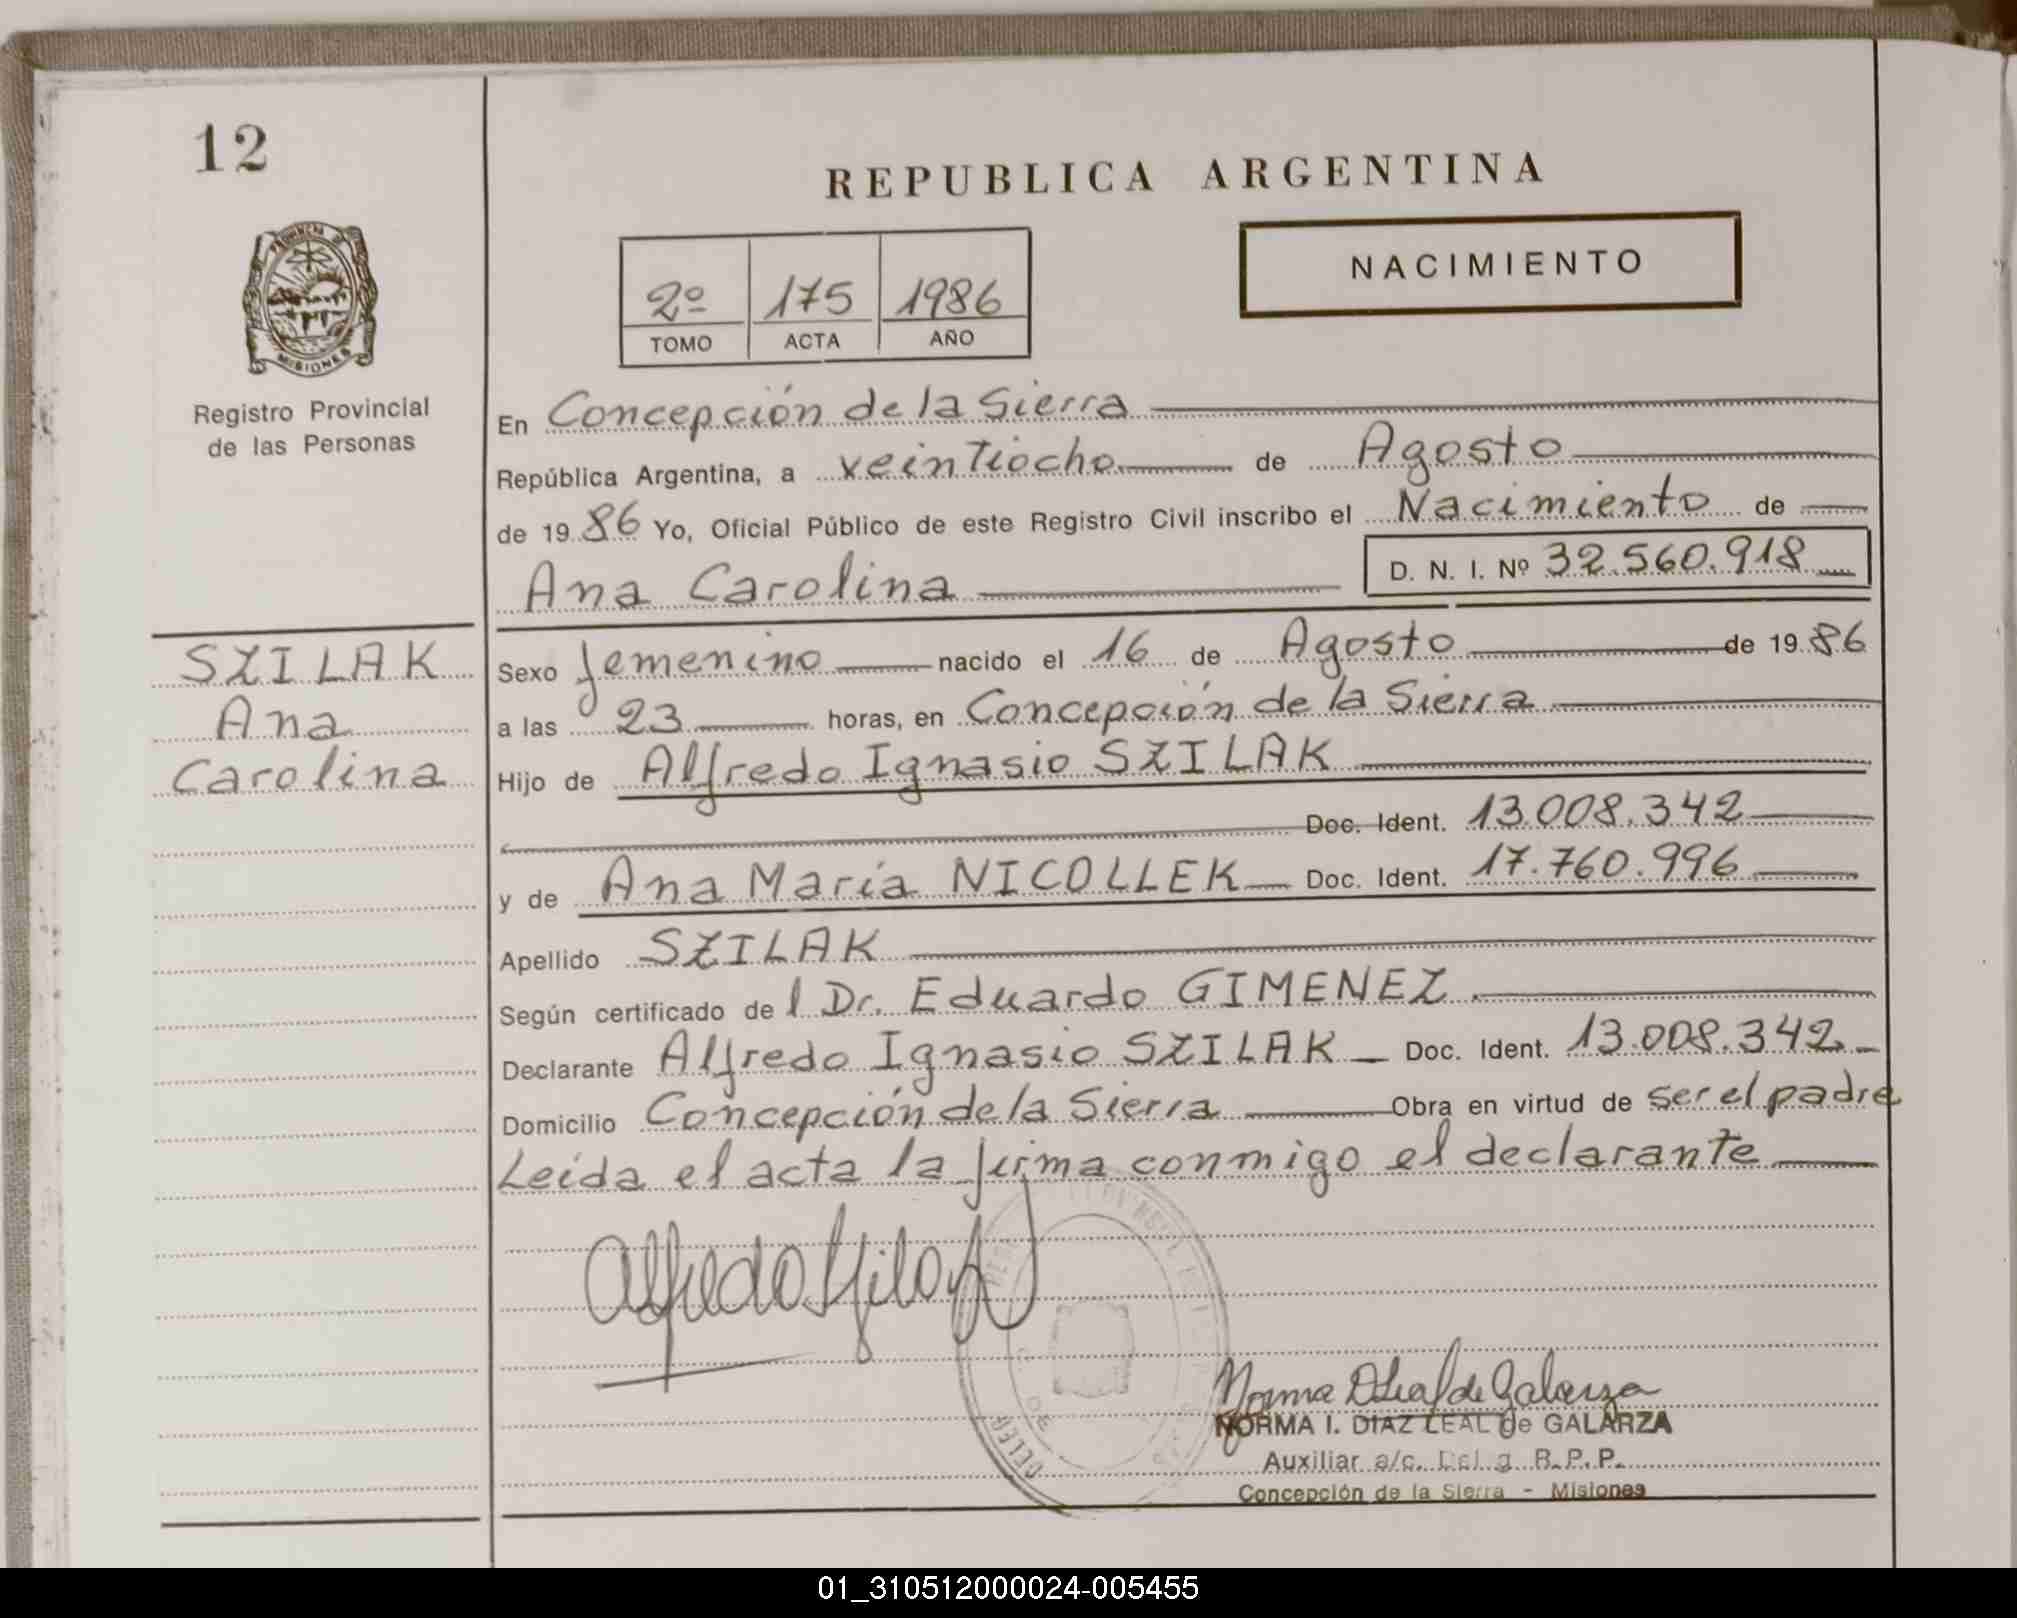 12
REPUBLICA ARGENTINA
PROVINCIA DE
MISIONES
Registro Provincial
de las Personas
2º 175 1986
TOMO ACTA AÑO
NACIMIENTO
En Concepción de la Sierra
República Argentina, a veintiocho de Agosto
de 1986 Yo, Oficial Público de este Registro Civil inscribo el Nacimiento de
Ana Carolina D. N. I. Nº 32.560.918
SZILAK
Ana
Carolina
Sexo femenino nacido el 16 de Agosto de 1986
a las 23 horas, en Concepción de la Sierra
Hijo de Alfredo Ignasio SZILAK
Doc. Ident. 13.008.342
y de Ana María NICOLLEK Doc. Ident. 17.760.996
Apellido SZILAK
Según certificado de l Dr. Eduardo GIMENEZ.
Declarante Alfredo Ignasio SZILAK Doc. Ident. 13.008.342
Domicilio Concepción de la Sierra Obra en virtud de ser el padre
Leída el acta la firma conmigo el declarante
Norma D Leal de Galarza
NORMA I. DIAZ LEAL de GALARZA
Auxiliar a/c. Deleg R.P.P.
Concepción de la Sierra - Misiones
01_310512000024-005455